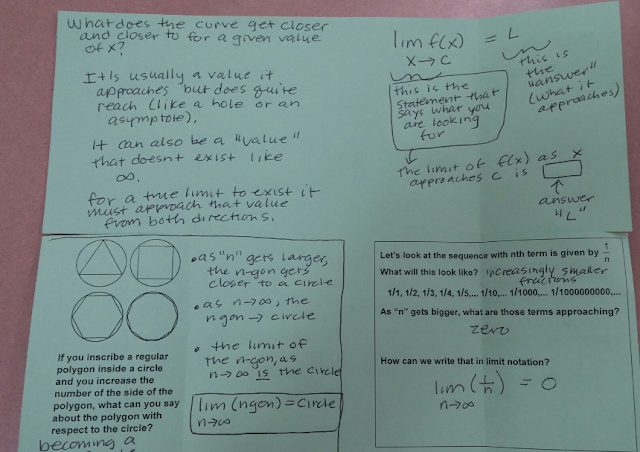 What does the curve get closer
and closer to for a given value
of x?
It Is usually a value it
approaches but does quite
reach (like a hole or an
asymptote).
It can also be a "value"
that doesnt exist like
∞.
for a true limit to exist it
must approach that value
from both directions.
lim f(x) = L
x→c
this is the
statement that
says what you
are looking
for
this is
the
"answer"
(what it
approaches)
the limit of f(x) as x
approaches c is
answer
"L"
If you inscribe a regular
polygon inside a circle
and you increase the
number of the side of the
polygon, what can you say
about the polygon with
respect to the circle?
becoming a
• as "n" gets larger,
the n-gon gets
closer to a circle
• as n→∞, the
ngon → circle
• the limit of
the n-gon, as
n→∞ is the circle
lim (ngon) = circle
n→∞
Let's look at the sequence with nth term is given by 1/n
What will this look like? increasingly smaller
fractions
1/1, 1/2, 1/3, 1/4, 1/5,... 1/10,... 1/1000,... 1/1000000000,...
As "n" gets bigger, what are those terms approaching?
zero
How can we write that in limit notation?
lim (1/n) = 0
n→∞